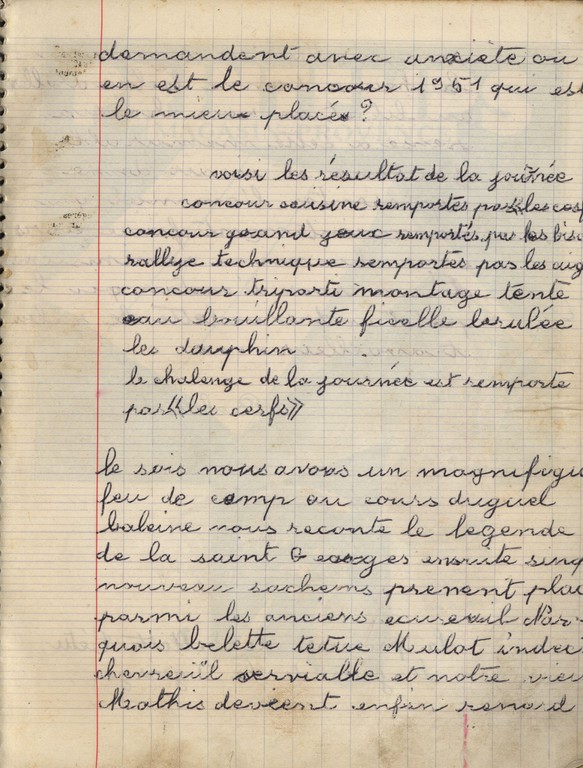 demandent avec anxiété ou
en est le concour 1951 qui est
le mieux placés?
voisi les résultat de la journée
concour cuisine remportés par «les cerf
concour grand jeux remportés par les biso
rallye technique remportés pas les aig
concour triporti montage tente
eau bouillante ficelle brulée
les dauphin
le chalenge de la journée est remporte
par «les cerfs»
le soir nous avons un magnifiqu
feu de camp au cours duquel
baleine nous raconte le legende
de la saint Georges ensuite sinq
nouveau sachems prenent plac
parmi les anciens ecureuil Nar
quois belette tetue Mulot indec
chevreuil serviable et notre vieu
Mathis devient enfin renard